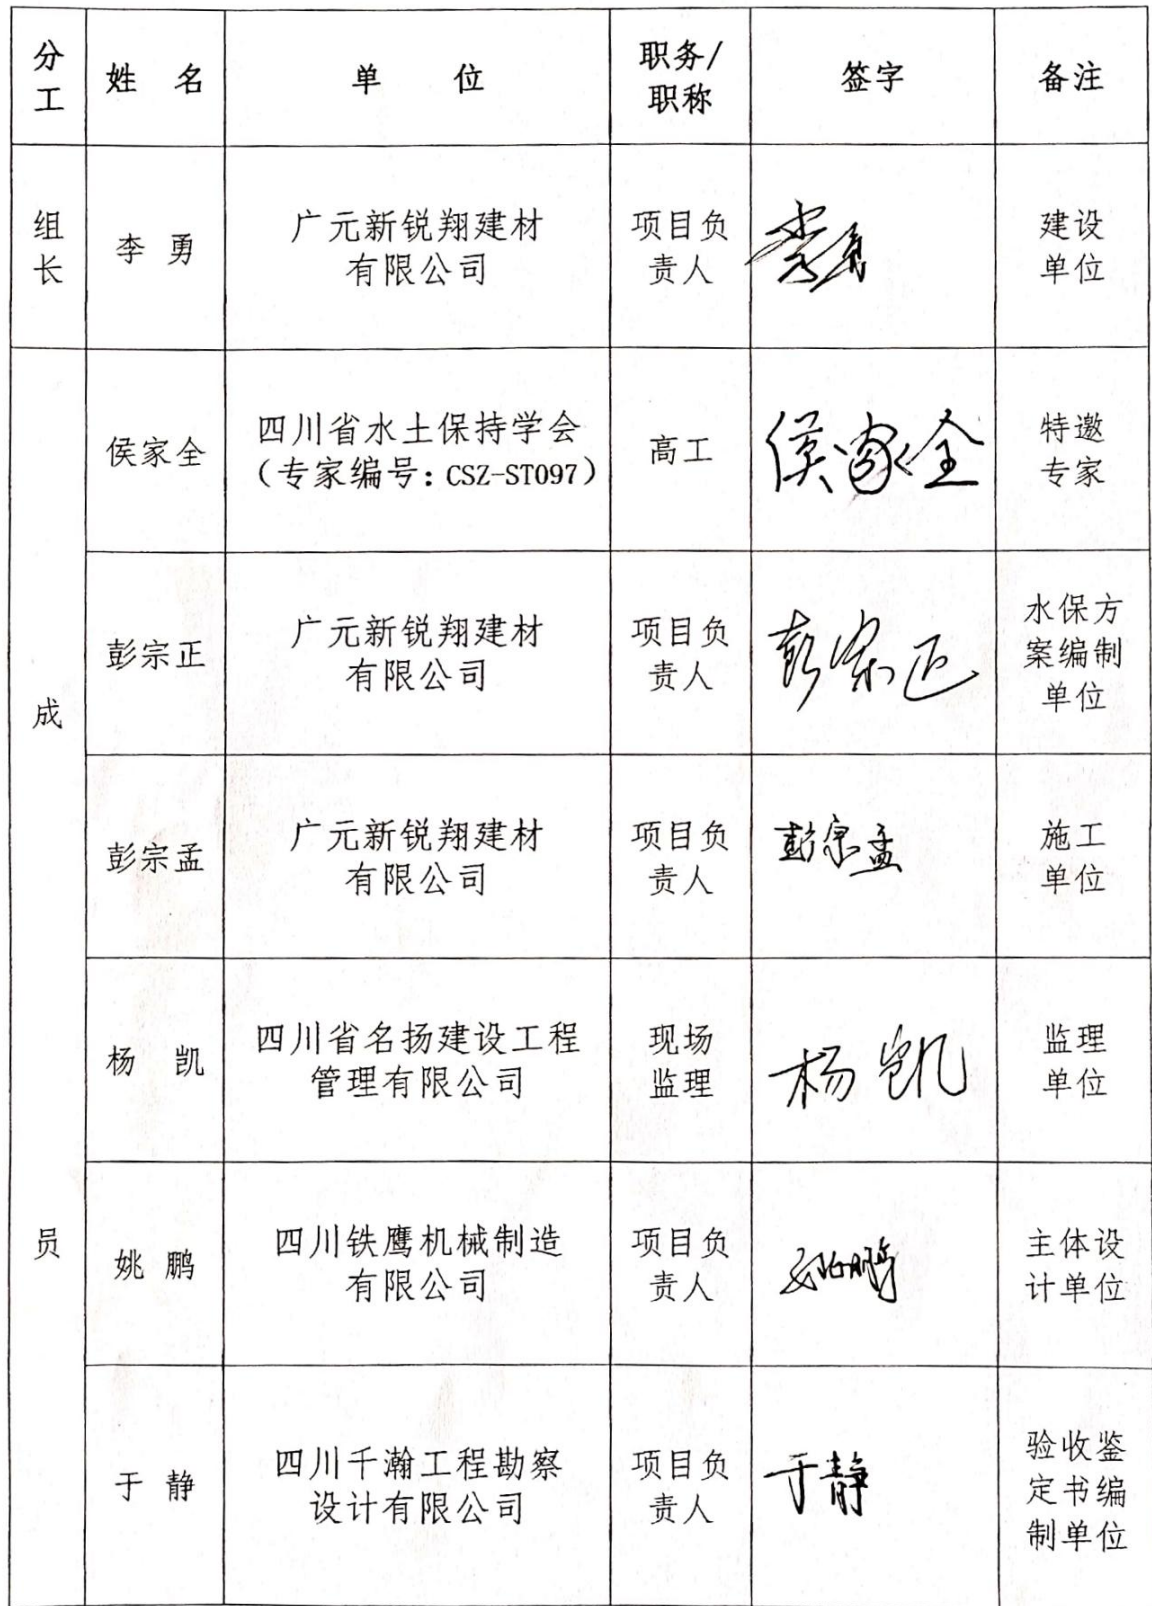 分工
姓 名
单 位
职务/
职称
签字
备注
组长
李 勇
广元新锐翔建材
有限公司
项目负
责人
李勇
建设
单位
成员
侯家全
四川省水土保持学会
（专家编号：CSZ-ST097）
高工
侯家全
特邀
专家
彭宗正
广元新锐翔建材
有限公司
项目负
责人
彭宗正
水保方
案编制
单位
彭宗孟
广元新锐翔建材
有限公司
项目负
责人
彭宗孟
施工
单位
杨 凯
四川省名扬建设工程
管理有限公司
现场
监理
杨凯
监理
单位
姚 鹏
四川铁鹰机械制造
有限公司
项目负
责人
姚鹏
主体设
计单位
于 静
四川千瀚工程勘察
设计有限公司
项目负
责人
于静
验收鉴
定书编
制单位